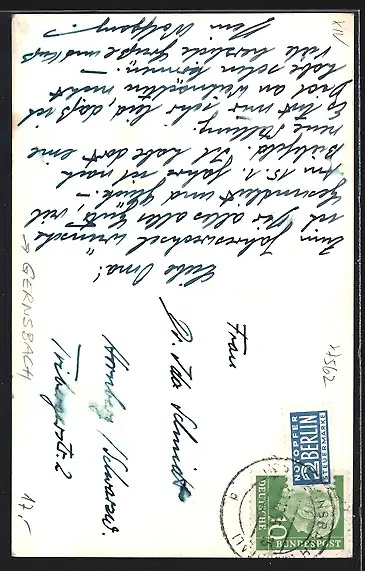 Liebe Oma!
Zum Jahreswechsel wünsche
ich Dir alles alles Gute, viel
Gesundheit und Glück. –
Am 15.1. fahre ich nach
Bielefeld. Ich habe dort eine
neue Stellung.
Es tut mir sehr leid, daß ich
Dich an Weihnachten nicht
habe sehen können. –
Viele herzliche Grüße und Kuß
Dein Wolfgang. –
Frau
Ida Schmidt
Hornberg / Schwarzw.
Tribergerstr. 2
→ GERNSBACH
XIV
17,-
NOTOPFER
2 BERLIN
STEUERMARKE
DEUTSCHE
BUNDESPOST
10